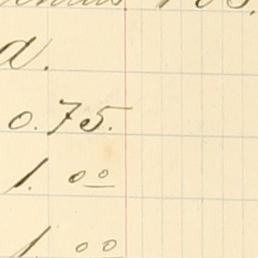 a.
0.75.
1.00
1.00